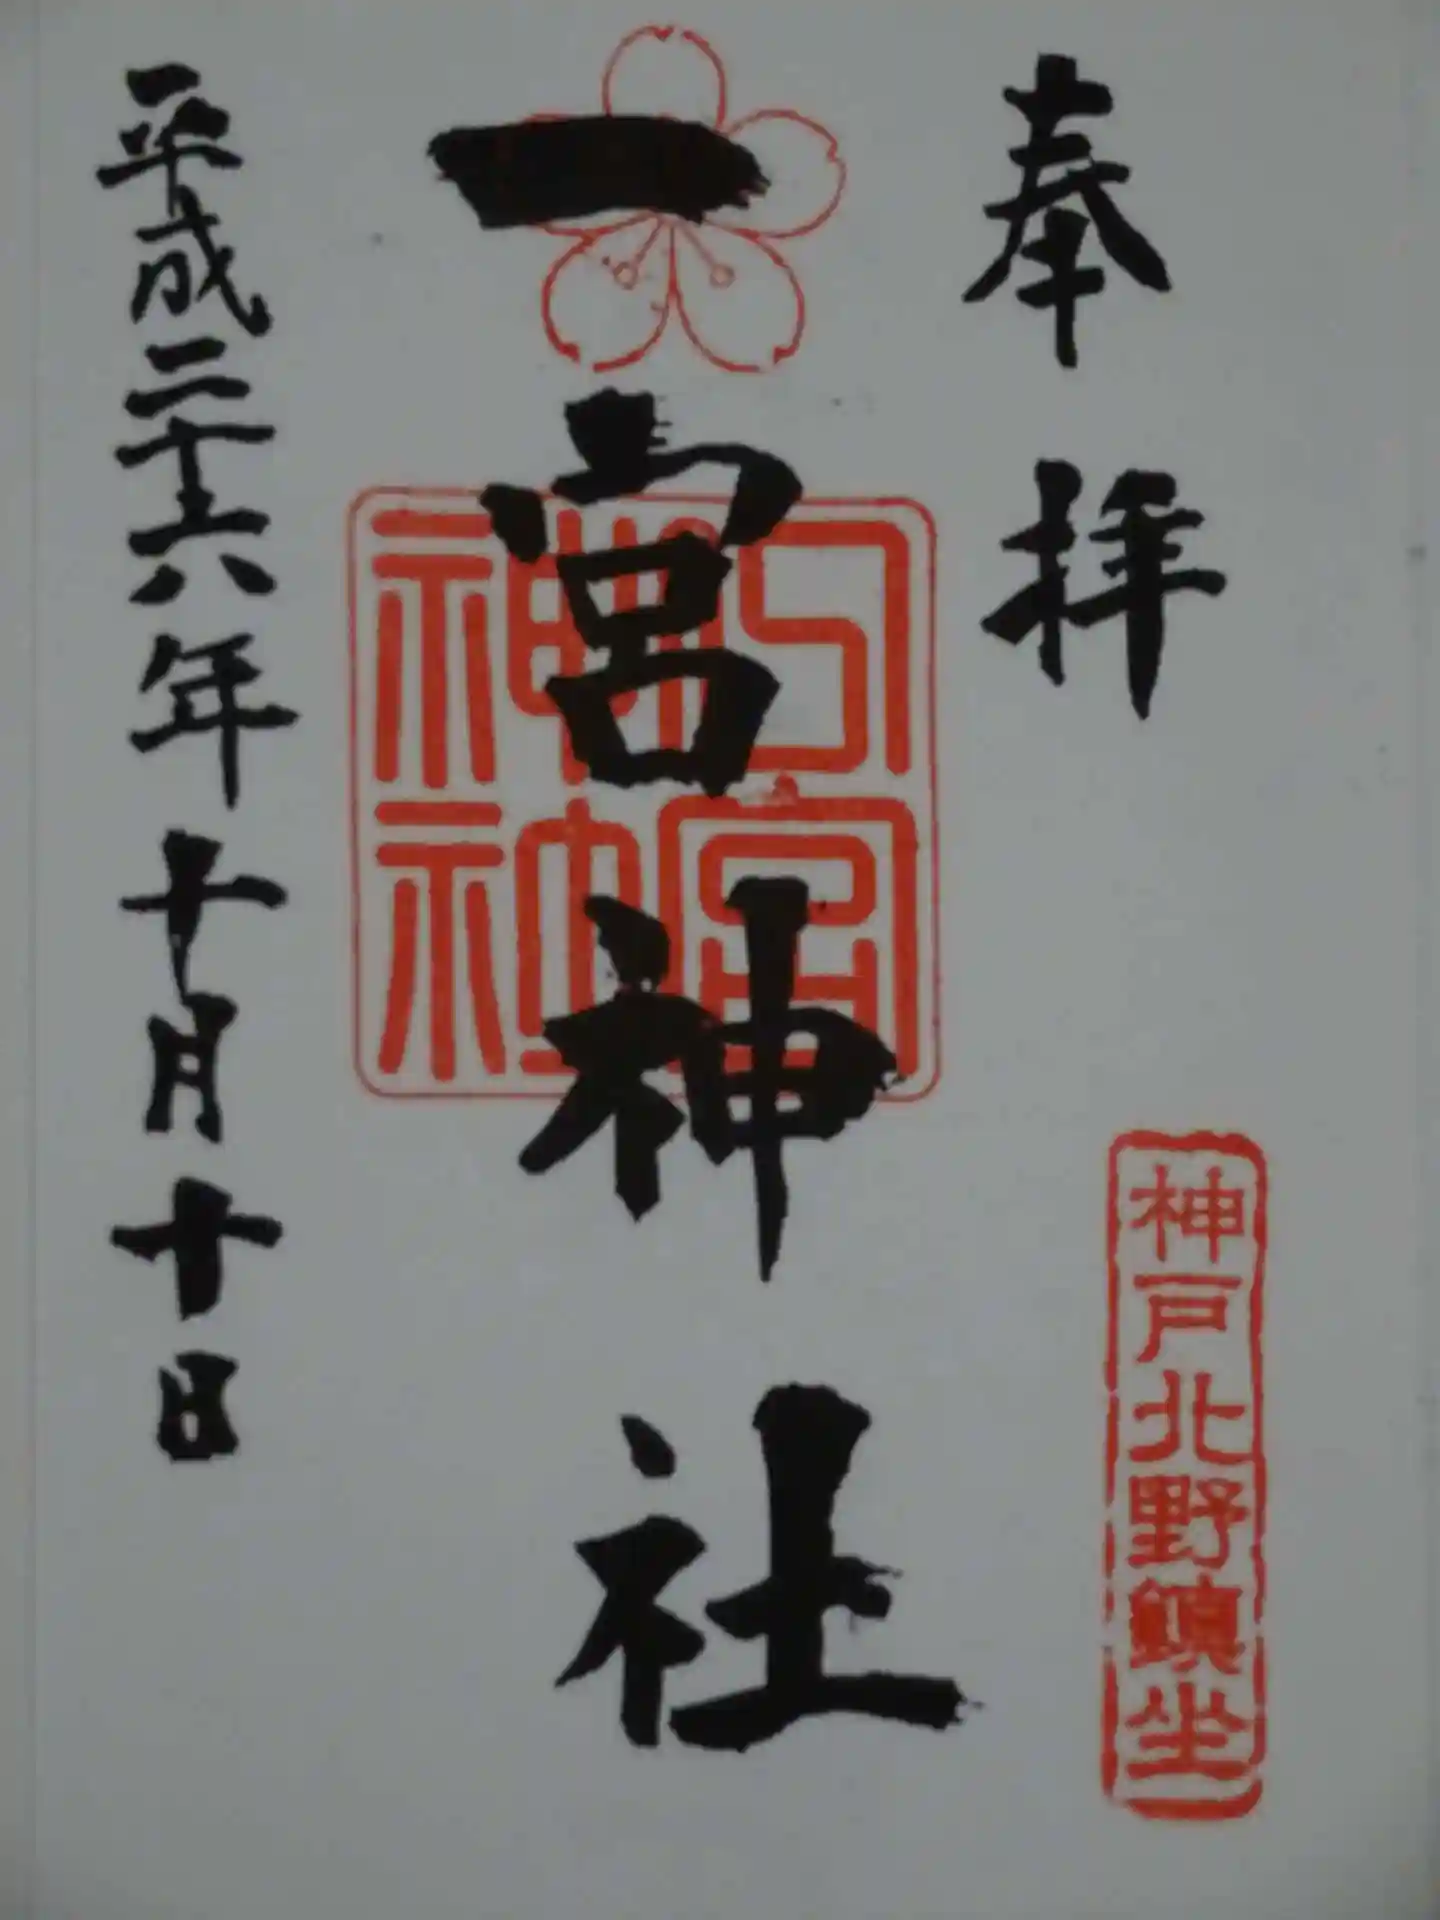 奉拝
神戸北野鎮坐
一宮神社
平成二十六年十月十日